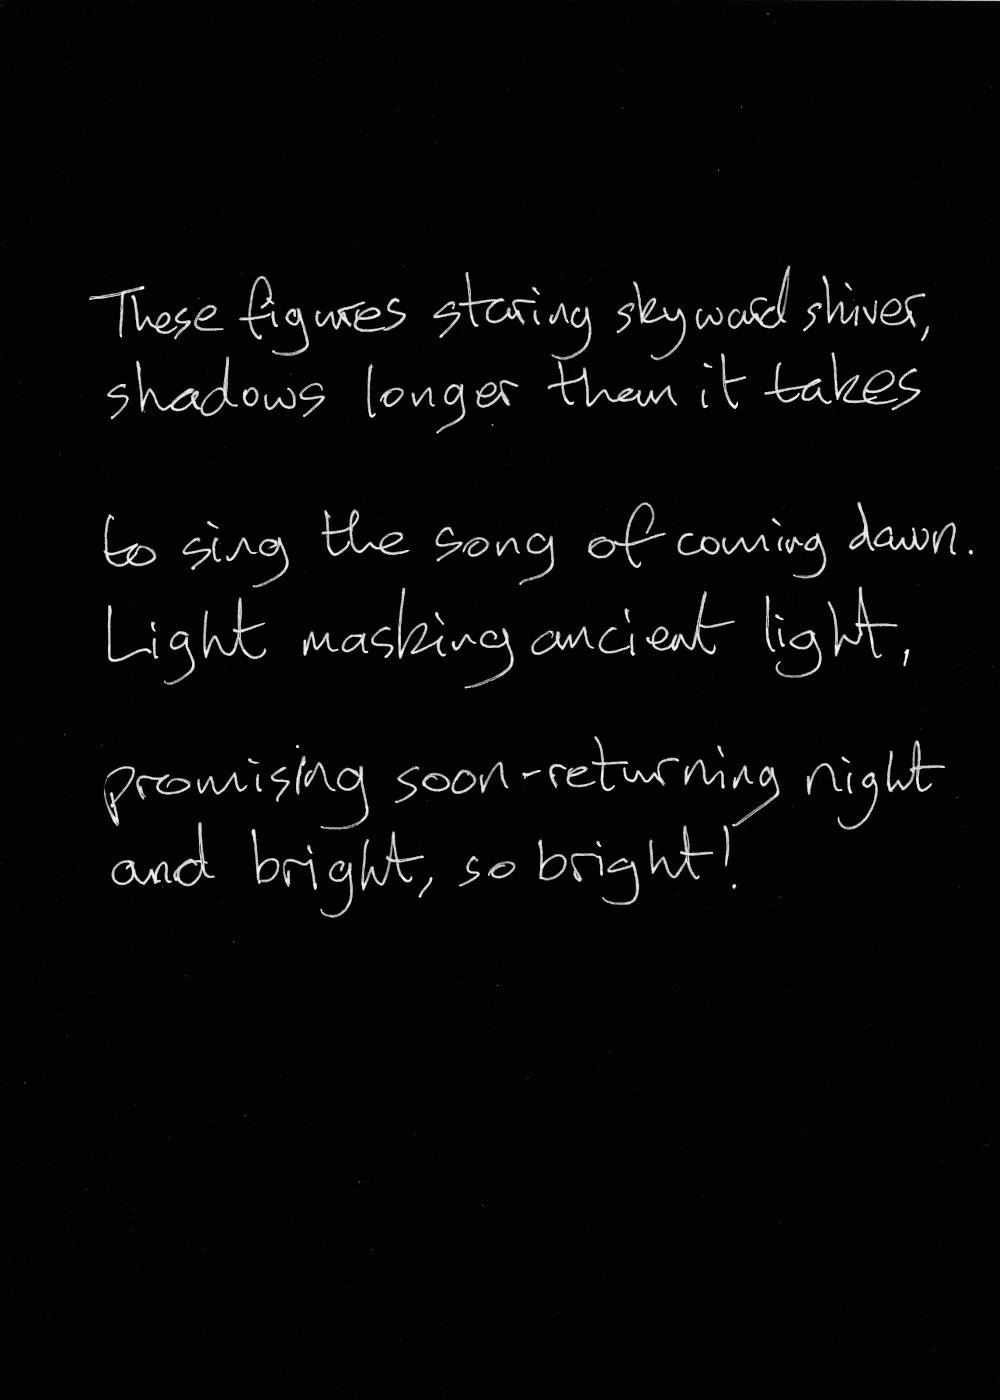 These figures staring skyward shiver,
shadows longer than it takes
to sing the song of coming dawn.
Light masking ancient light,
promising soon-returning night
and bright, so bright!